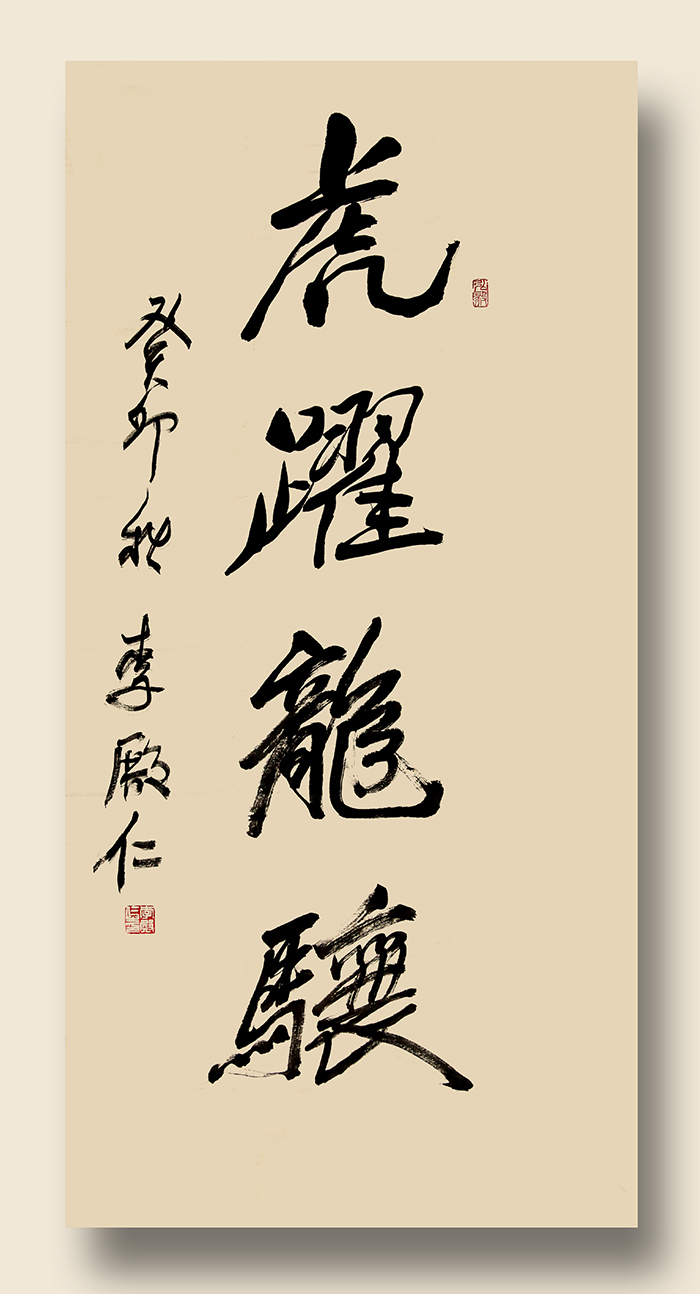 虎躍龍驤
癸卯秋 李殿仁